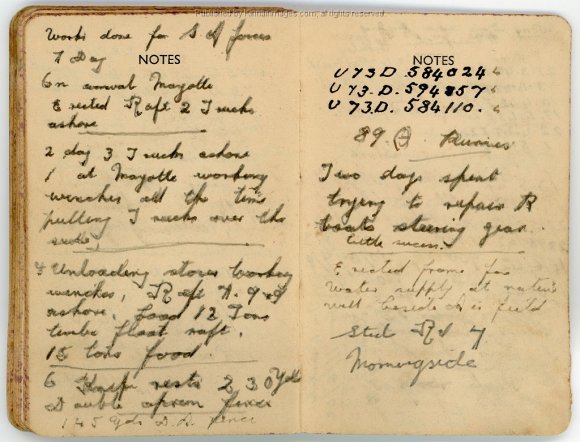 Published by kinnethmages.com, all rights reserved.
Work done for S A forces
1 Day
NOTES
On arrival Mayotte
Erected Raft 2 Trucks
ashore
2 day 3 Trucks ashore
1 at Mayotte working
winches all the time
pulling Trucks over the
4 Unloading stores working
winches, Raft
ashore. Load 12 Tons
timber float raft.
15 tons food.
6 rests 230 Yds
Double apron fence
145 Yds D.A. fence
NOTES
U 73.D. 584024
U 73.D. 594857
U 73.D. 584110.
89
Two days spent
trying to repair R
boats steering gear.
little success.
Erected frame for
water supply at native
well beside field
Steel Rd 7
Morningside